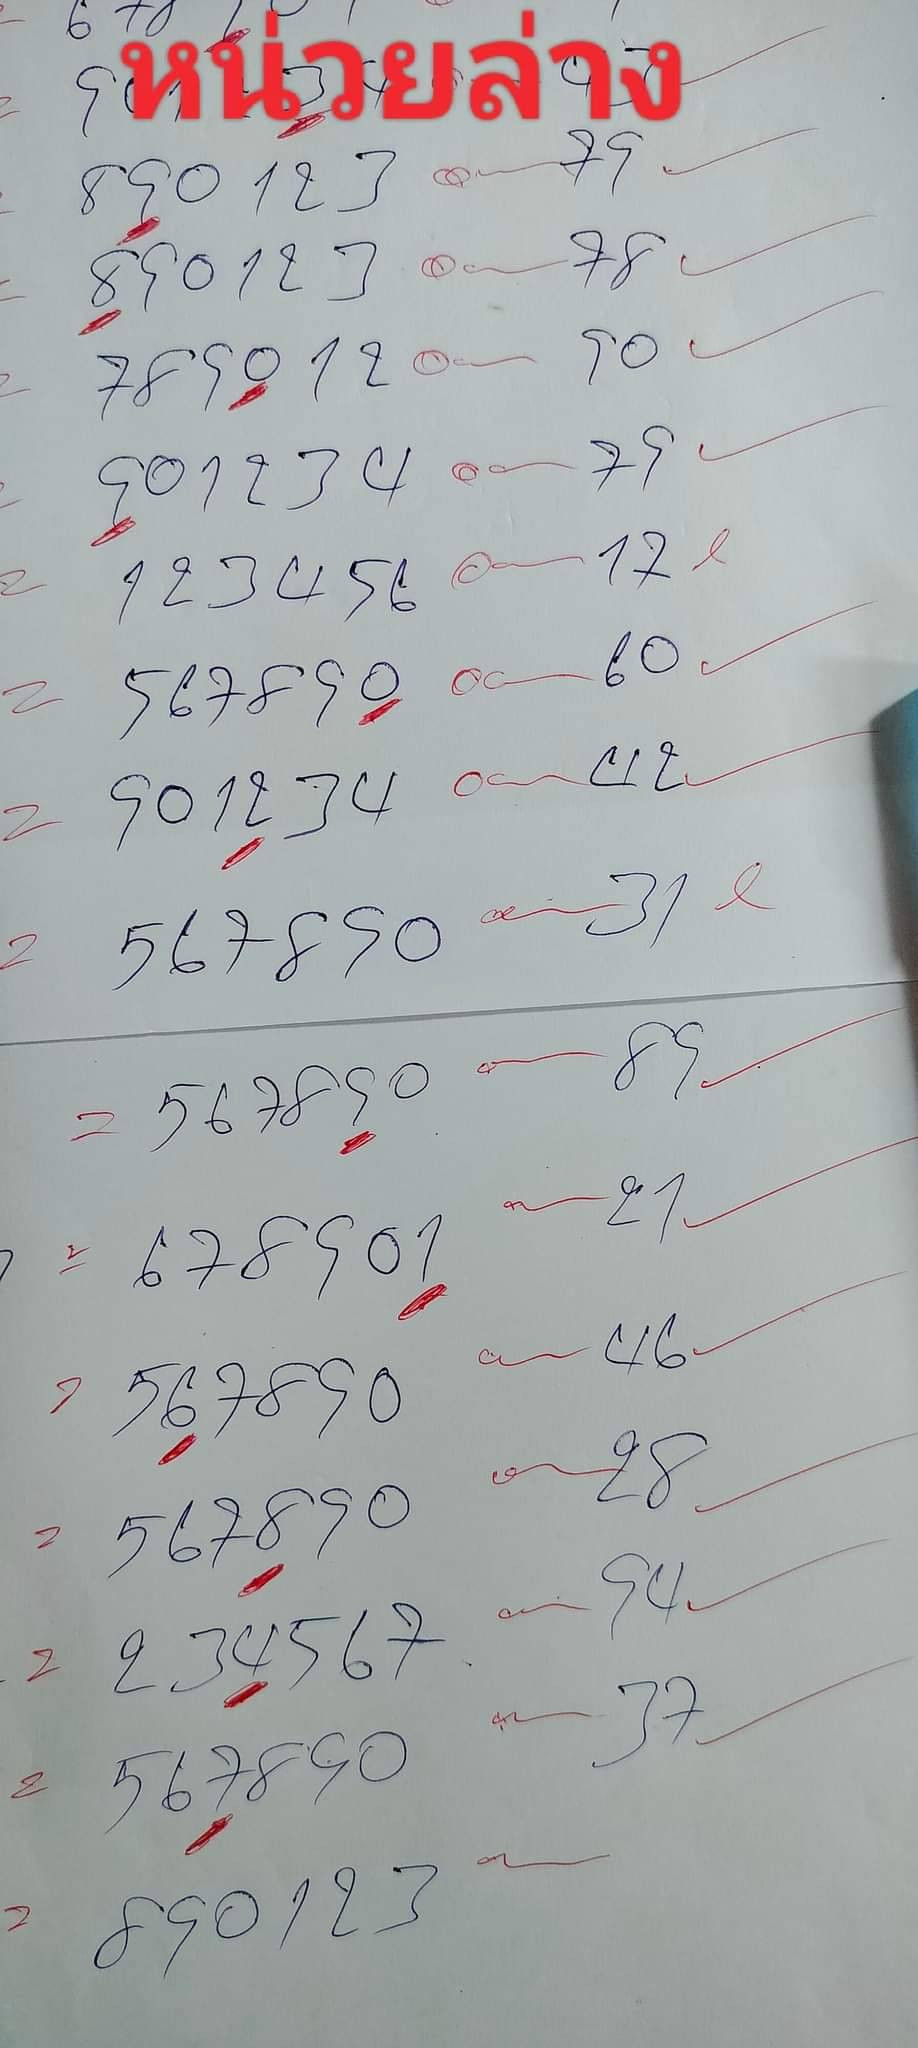 หน่วยล่าง
890123 79
890123 78
789012 90
901234 79
123456 17
567890 60
901234 42
567890 31
= 567890 89
= 678901 21
567890 46
= 567890 28
= 234567 94
= 567890 37
= 890123